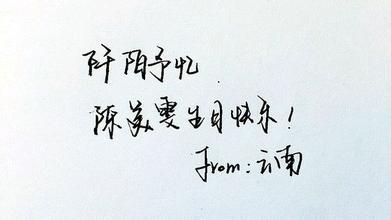 阡陌予忆
陈美雯生日快乐！
from：云南